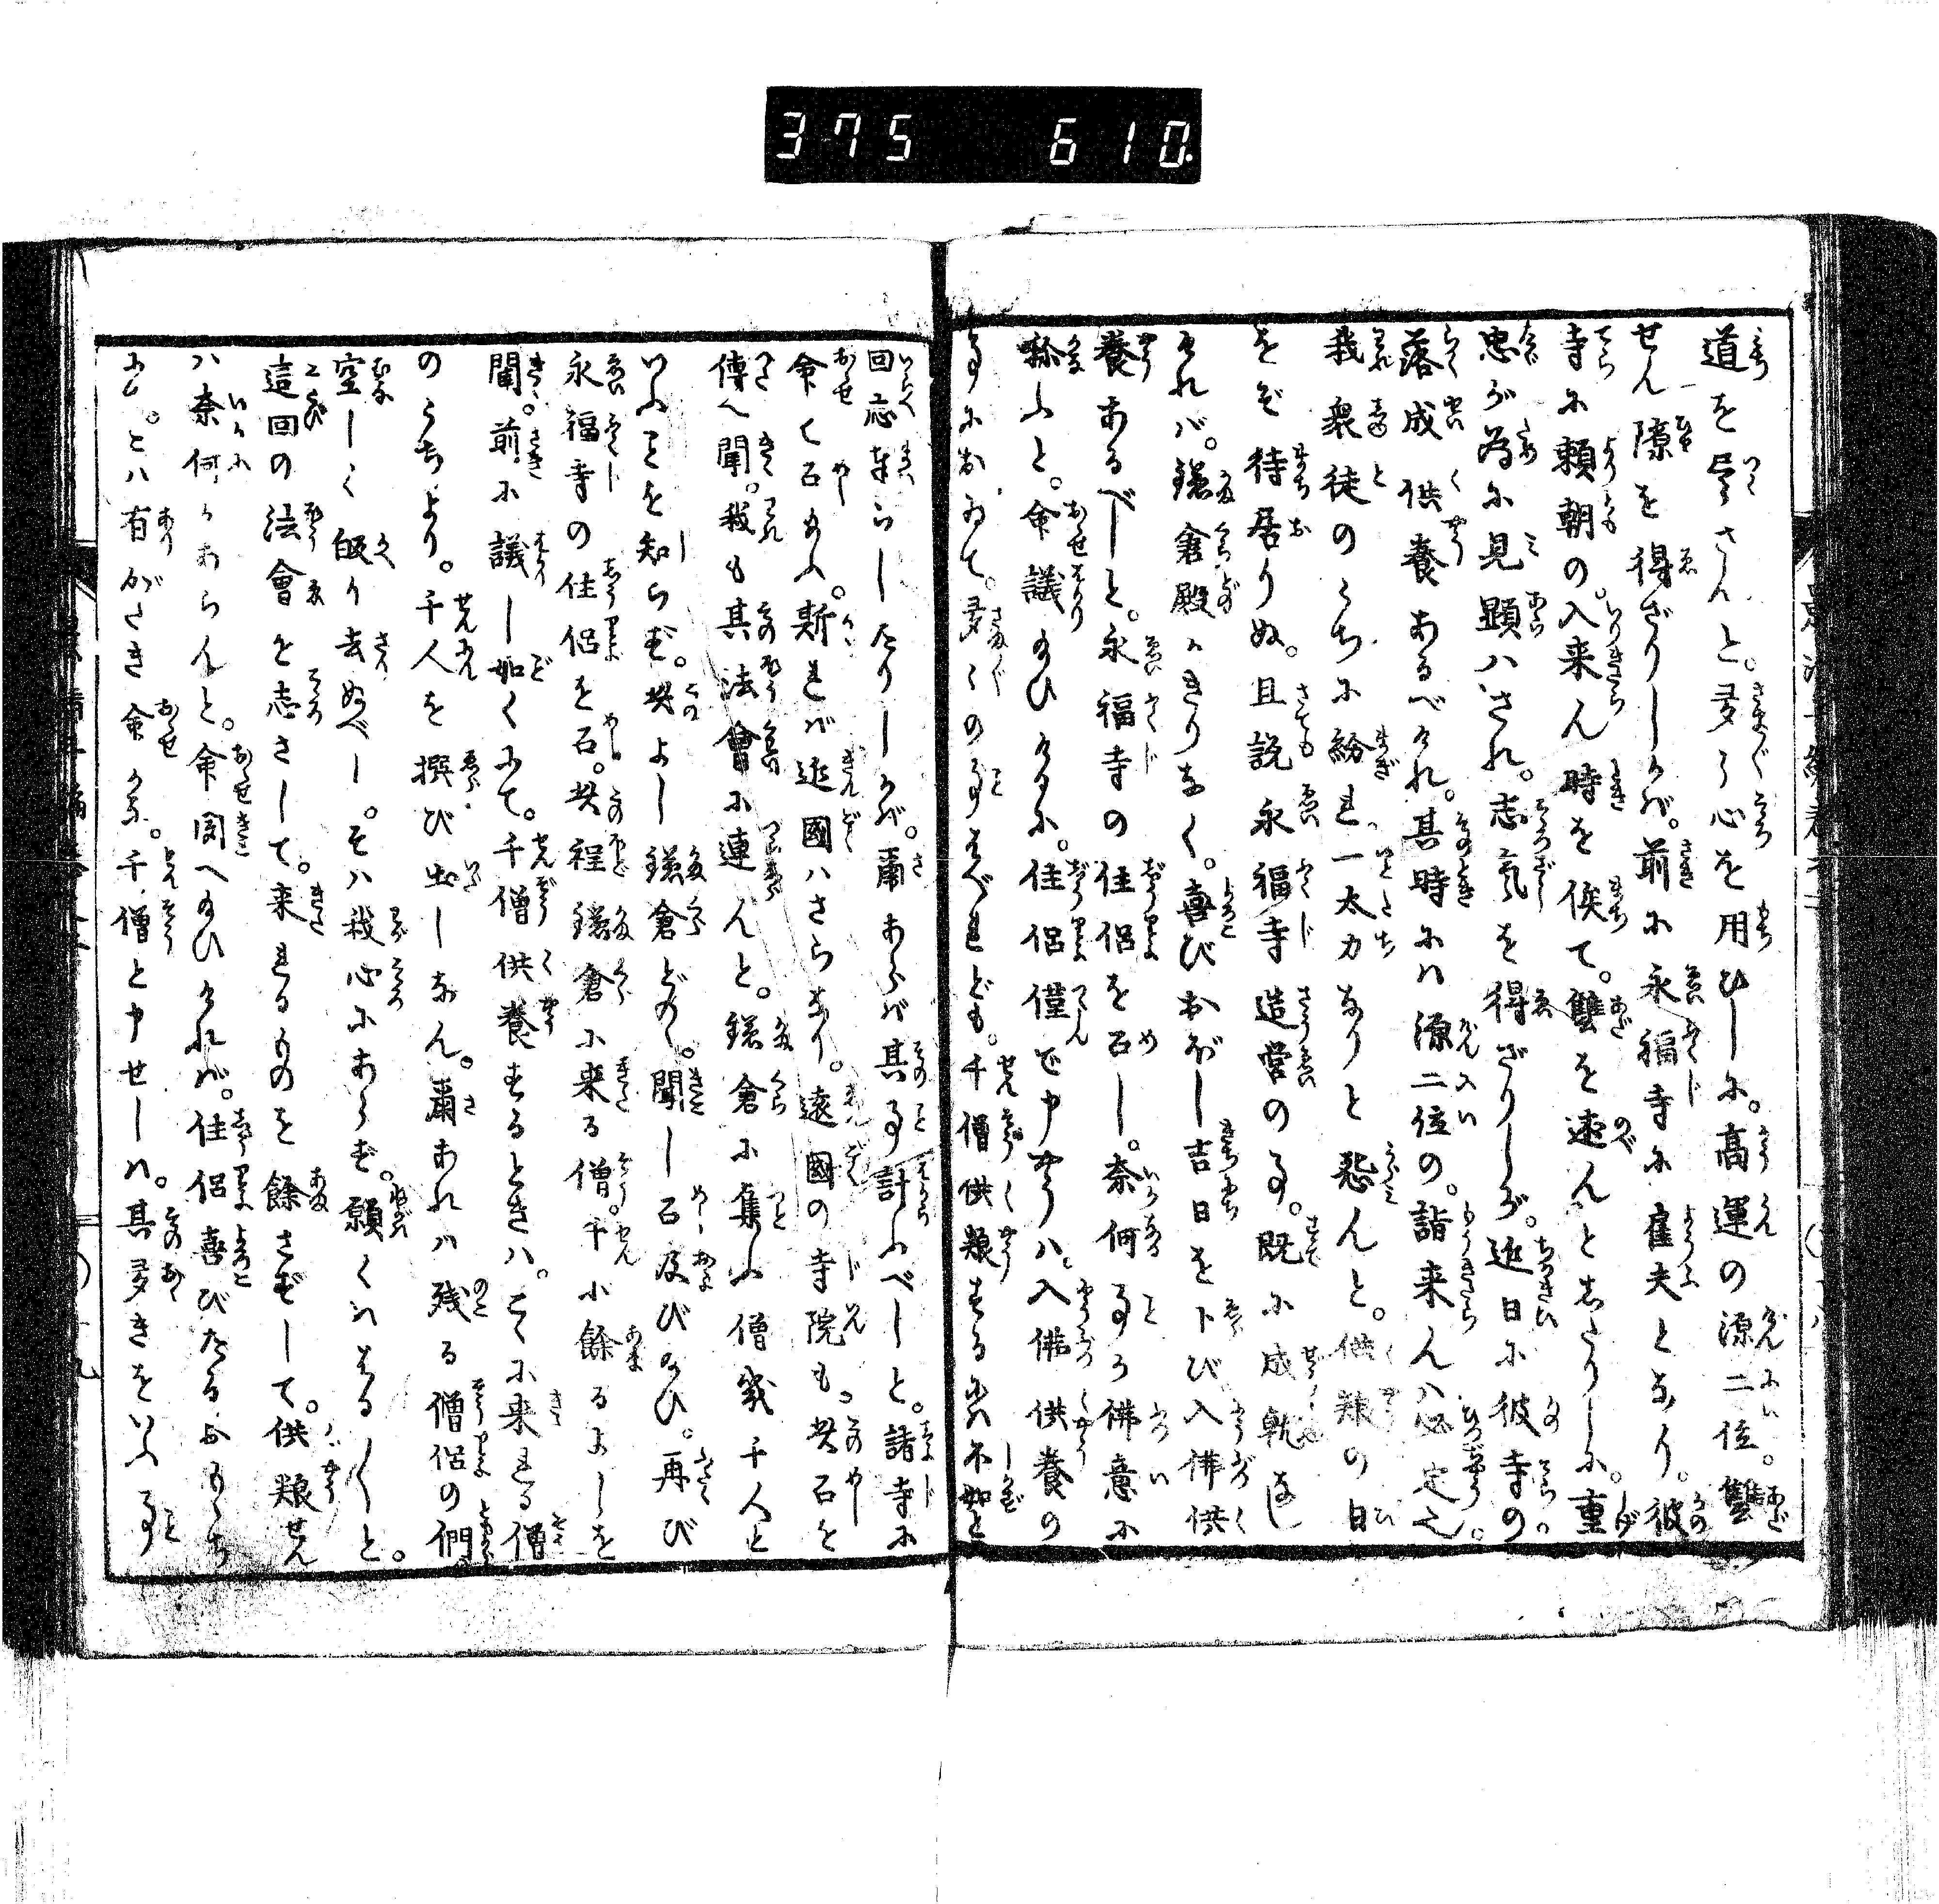 375 610.
道を尽さんと。多くの心を用ひしに。高運の源二位。讐
せん隙を得ざりしかば。前に永福寺に雇夫となり。彼
寺に頼朝の。入来ん時を俟て。讐を速んとしたりしに。重
忠が為に見顕ハされ。志気を得ざりしが。近日に彼寺の
落成供養あるべけれ。其時にハ源二位の。詣来んハ必定也。
我衆徒のうちに紛れ一太刀なりと怨んと。供養の日
をぞ待居りぬ。且説永福寺造営の事。既に成就なし
けれバ。鎌倉殿かぎりなく。喜びおぼし吉日を卜び入佛供
養あるべしと。永福寺の住侶を召し。奈何なる事か佛意に
称ふと。命議給ひけるに。住侶僅で申やうハ。入佛供養の
事におゐて。多くの事すべれども。千僧供養するにハ不如と
回応奉らしたりしかば。爾あらバ其事計ふべしと。諸寺に
命て召給ふ。斯れば近國ハさらなり。遠國の寺院も。其召を
傳へ聞。我も其法會に連んと。鎌倉に集ふ僧幾千人と
いふことを知らず。其よし鎌倉どの。聞し召及び給ひ。再び
永福寺の住侶を召。其程鎌倉に来る僧。千に餘るよしを
聞。前に議し如くにて。千僧供養するときハ。こゝに来れる僧
のうちより。千人を撰び出しなん。爾あれハ残る僧侶の們
空しく皈り去ぬべし。そハ我心にあらず。願くハはる〲と。
這回の法會を志さして。来れるものを餘さずして。供養せん
ハ奈何かあらんと。命聞へ給ひけれバ。住侶喜びたるおももち
にて。こハ有がたき命かな。千僧と申せしハ。其多きをいふ事